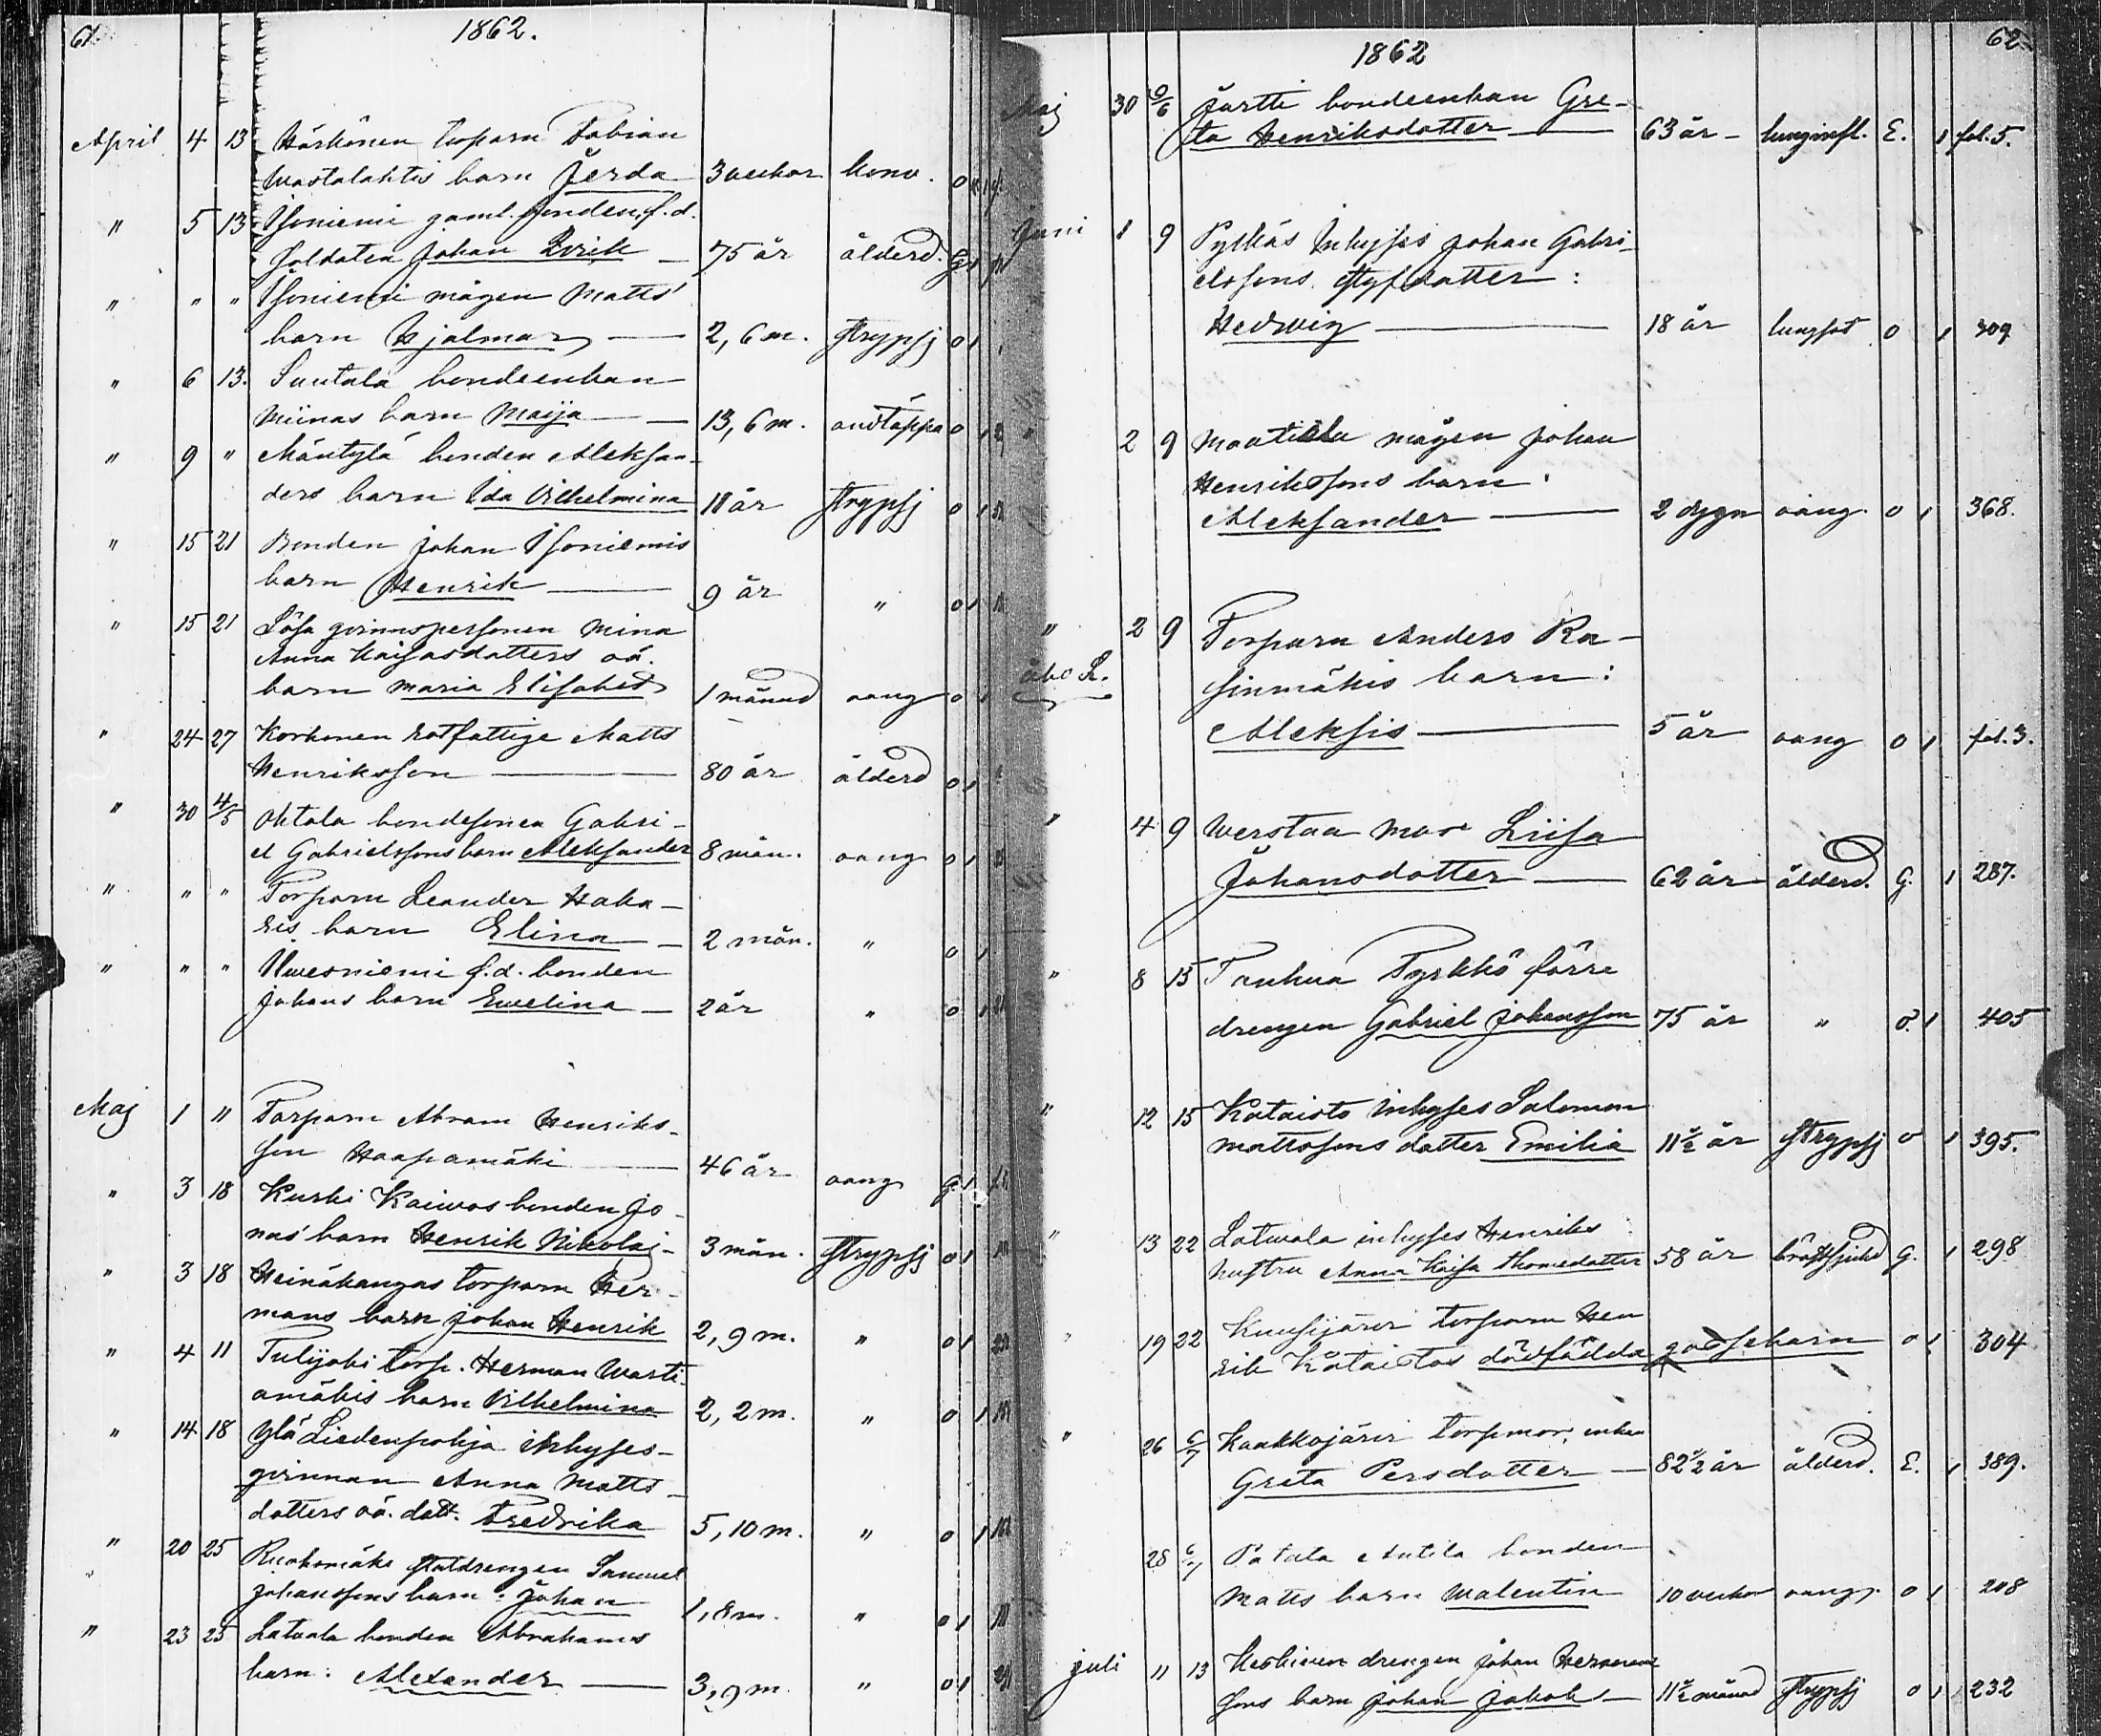 61.
1862.
April 4 13 Härkönen torparn Fabian
Wastalahtis barn Jerda 3 veckor konv. o
" 5 13 Isoniemi gaml. bonden, f.d.
Soldaten Johan Qvick 75 år ålderd. G 1
" " " Isoniemi mågen Matts'
barn Hjalmar 2, 6 m. strypsj o 1
" 6 13. Suutala bondeenkan
Miinas barn Maija 13, 6 m. andtäppa o 1
" 9 " Mäntylä bonden Aleksan-
ders barn Ida Vilhelmina 11 år strypsj o 1
" 15 21 Bonden Johan Isoniemis
barn Henrik 9 år " o 1
" 15 21 Lösa qvinnspersonen Mina
Anna Kaisasdatters oä.
barn Maria Elisabet 1 månad oang o 1
" 24 27 Korhonen rotfattige Matts
Henriksson 80 år ålderd o 1
" 30 4/5 Ohtala bondesonen Gabri-
el Gabrielssons barn Aleksander 8 mån. oang o 1
" " " Torparn Leander Haka-
ris barn Elina 2 mån. " o 1
" " " Ilvesniemi f.d. bonden
Johans barn Ewelina 2 år " o 1
Maj 1 " Torparn Abram Henriks-
son Haapamäki 46 år oang G. 1
" 3 18 Kurki Kaivos bonden Jo-
nas' barn Henrik Nikolaj 3 mån. strypsj o 1
" 3 18 Heinäkangas torparn Her-
mans barn Johan Henrik 2, 9 m. " o 1
" 4 11 Tulijoki torp. Herman Warti-
amäkis barn Vilhelmina 2, 2 m. " o 1
" 14 18 Ylä Liedenpohja inhyses-
qvinnan Anna Matts-
datters oä. datt. Fredrika 5, 10 m. " o 1
" 20 25 Ruokomäki statdrengen Samuel
Johanssons barn: Johan 1, 8 m. " o 1
" 23 25 Latvala bonden Abrahams
barn: Alexander 3, 9 m. " o 1
62.
1862
Maj 30 9/6 Jartti bondeenkan Gre-
ta Henriksdotter 63 år lunginfl. E. 1 fol. 5.
Juni 1 9 Pylkäs Inhyses Johan Gabri-
elssons styfdatter:
Hedwig 18 år lungsot o 1 309
" 2 9 Maatiala mågen Johan
Henrikssons barn:
Aleksander 2 dygn oäng. o 1 368.
" 2 9 Torparn Anders Ra-
åbo L. sinmäkis barn:
Aleksis 5 år oang o 1 fol. 3.
" 4 9 Werstaa mor Liisa
Johansdotter 62 år ålderd. G. 1 287.
" 8 15 Tanhua Tyrkkö förre
drengen Gabriel Johansson 75 år " o 1 405
" 12 15 Kataisto inhyses Salomon
Mattssons datter Emilia 11 1/2 år strypsj o 1 395.
" 13 22 Latvala inhyses Henriks
hustru Anna Kaisa Thomedatter 58 år bröstsjukd G. 1 298
" 19 22 Kuusijärvi torparn Hen
rik Kataistos dödfödda gossebarn o 1 304
" 26 6/7 Kaakkojärvi torpmor, enkan
Greta Persdotter 82 1/2 år ålderd. E. 1 389.
28 6/7 Patala Antila bonden
Matts barn Walentin 10 veckor oang. o 1 208
Juli 11 13 Keskinen drengen Johan Hermans
sons barn Johan Jakob 11 1/2 månad strypsj o 1 232